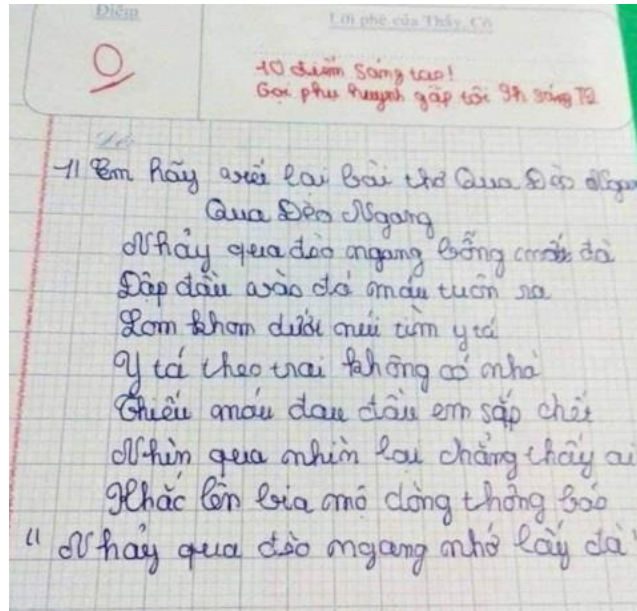 Điểm
Lời phê của Thầy, Cô
0
10 điểm sáng tạo!
Gọi phụ huynh gặp tôi 9h sáng T2
1) Em hãy viết lại bài thơ Qua Đèo Ngang
Qua Đèo Ngang
Nhảy qua đèo ngang bỗng mất đà
Đập đầu vào đá máu tuôn ra
Lom khom dưới núi tìm y tá
Y tá theo trai không có nhà
Thiếu máu đau đầu em sắp chết
Nhìn qua nhìn lại chẳng thấy ai
Khắc lên bia mộ dòng thông báo
" Nhảy qua đèo ngang nhớ lấy đà"